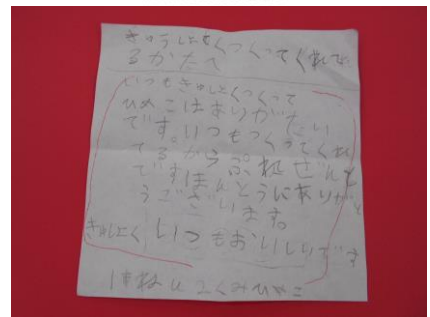 きゅうしょくつくってくれて
るかたへ
いつもきゅしょくつくって
ひめこはありがたい
です。いつもつくってくれ
てるからぷれぜんと
ですほんとうにありがと
うございます。
きゅしょく いつもおいしいです
1ねん 2くみひめこ